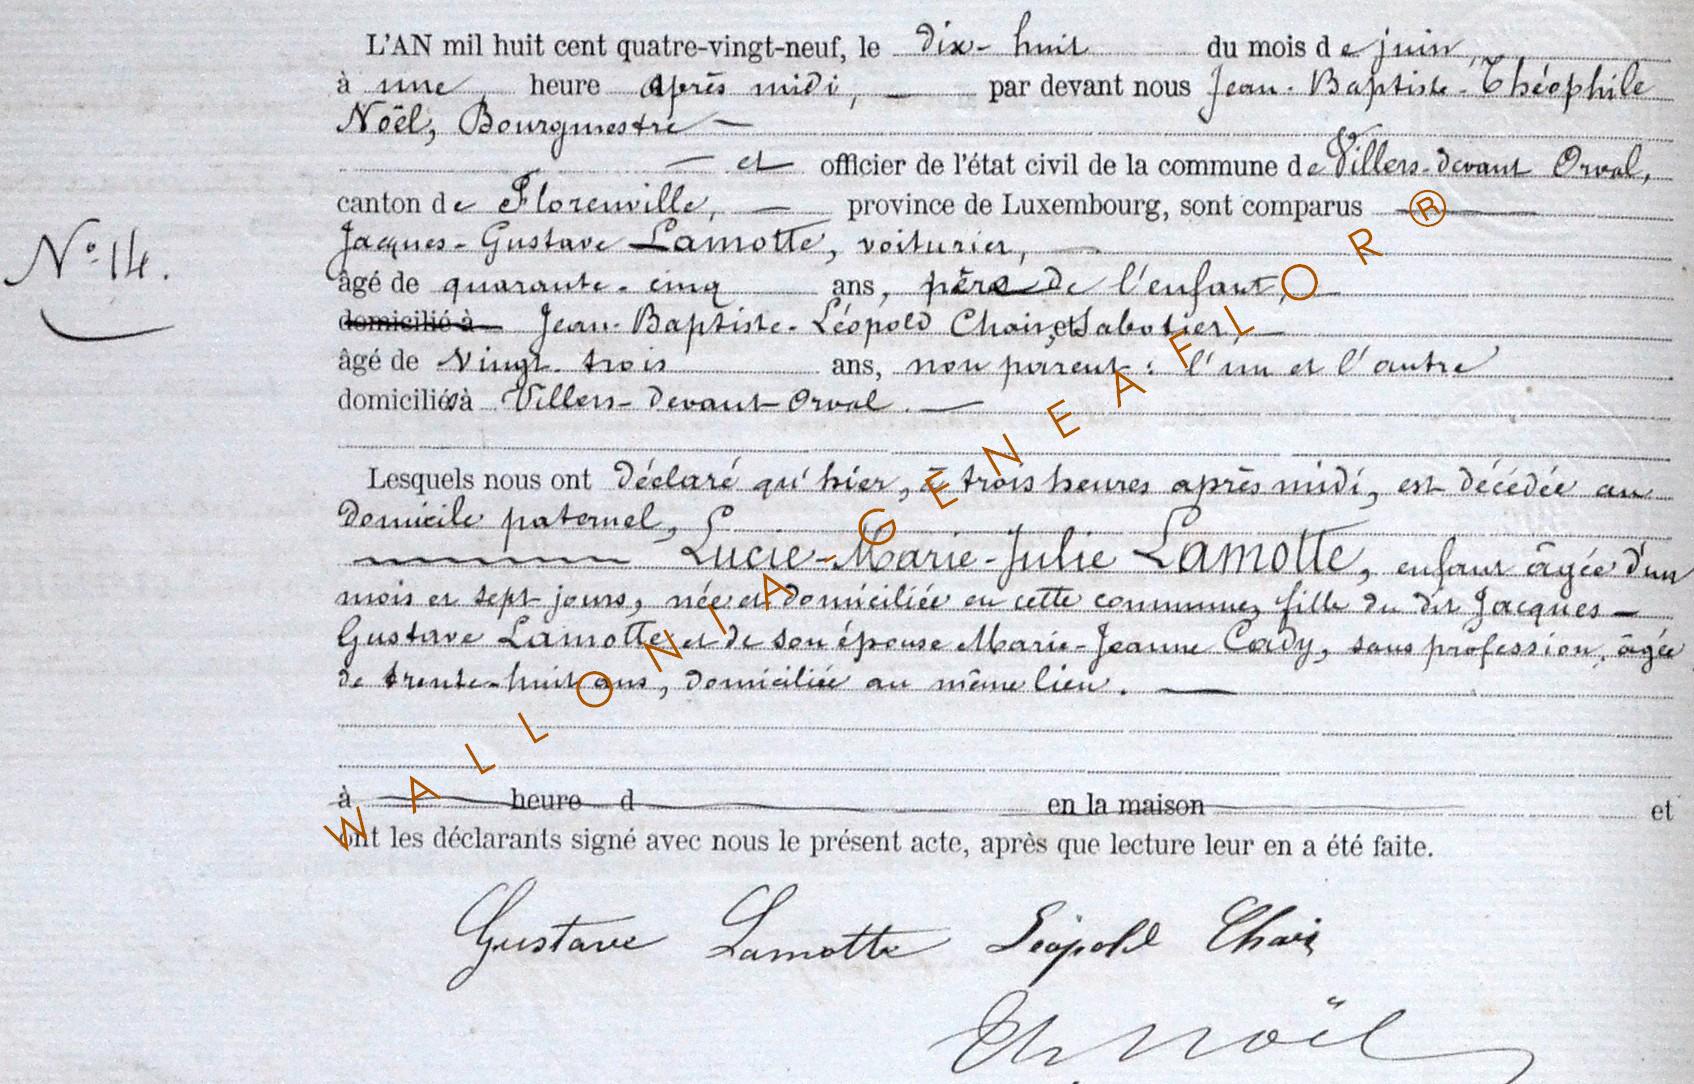 L'AN mil huit cent quatre-vingt-neuf, le dix-huit du mois de juin,
à une heure après midi, — par devant nous Jean-Baptiste-Théophile
Noël, Bourgmestre —
— et officier de l'état civil de la commune de Villers-devant Orval,
canton de Florenville, — province de Luxembourg, sont comparus —
Jacques-Gustave Lamotte, voiturier, —
N° 14.
âgé de quarante-cinq ans, père de l'enfant, —
domicilié à Jean-Baptiste-Léopold Chair, et Sabotier, —
âgé de vingt-trois ans, non parent : l'un et l'autre
domiciliés à Villers-devant-Orval. —
Lesquels nous ont déclaré qu'hier, à trois heures après midi, est décédée au
domicile paternel,
Lucie-Marie-Julie Lamotte, enfant âgée d'un
mois et sept jours, née et domiciliée en cette commune, fille du dit Jacques-
Gustave Lamotte et de son épouse Marie-Jeanne Cady, sans profession, âgée
de trente-huit ans, domiciliée au même lieu. —
à heure d en la maison et
ont les déclarants signé avec nous le présent acte, après que lecture leur en a été faite.
Gustave Lamotte Léopold Chair
Th Noël
WALLONIA-GENEAFLOR®